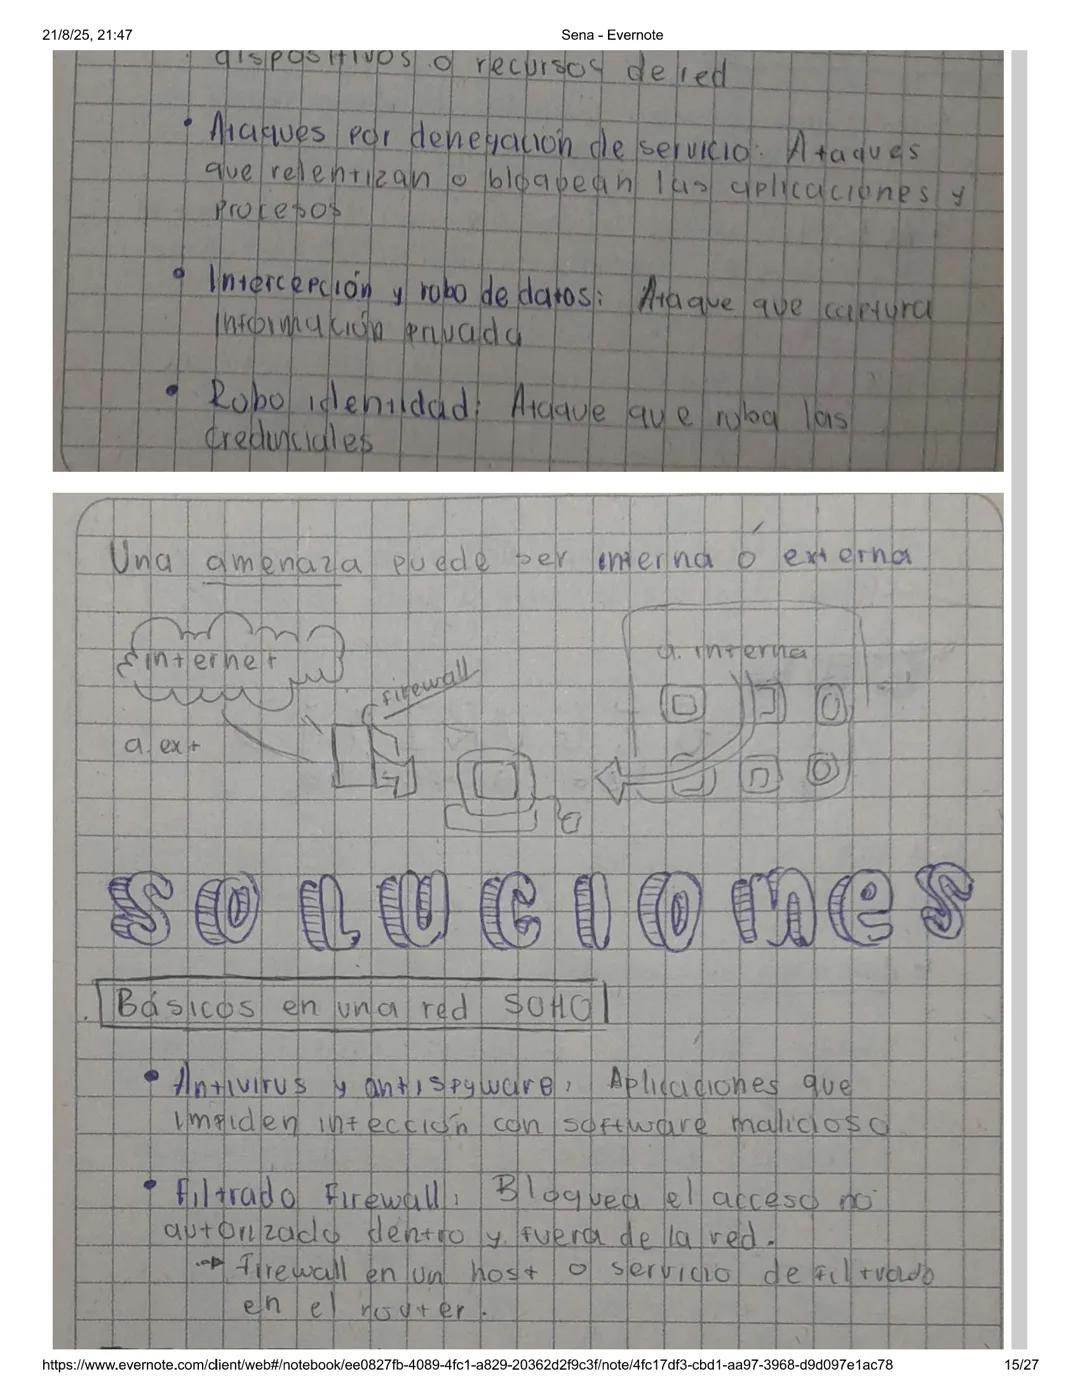 21/8/25, 21:47
Sena - Evernote
dispositivos o recursos de red
• Ataques por denegación de servicio: Ataques
que relentizan o bloquean las aplicaciones y
procesos
• Intercepción y robo de datos: Ataque que captura
Información privada
• Robo identidad: Ataque que roba las
Credenciales
Una amenaza puede ser interna ó externa
internet
firewall
a. interna
a. ext
SOLUCIONES
Básicos en una red SOHO
• Antivirus y antispyware: Aplicaciones que
impiden infección con software malicioso
• Filtrado Firewall: Bloquea el acceso no
autorizado dentro y fuera de la red.
→ Firewall en un host o servicio de filtrado
en el router.
https://www.evernote.com/client/web#/notebook/ee0827fb-4089-4fc1-a829-20362d2f9c3f/note/4fc17df3-cbd1-aa97-3968-d9d097e1ac78
15/27